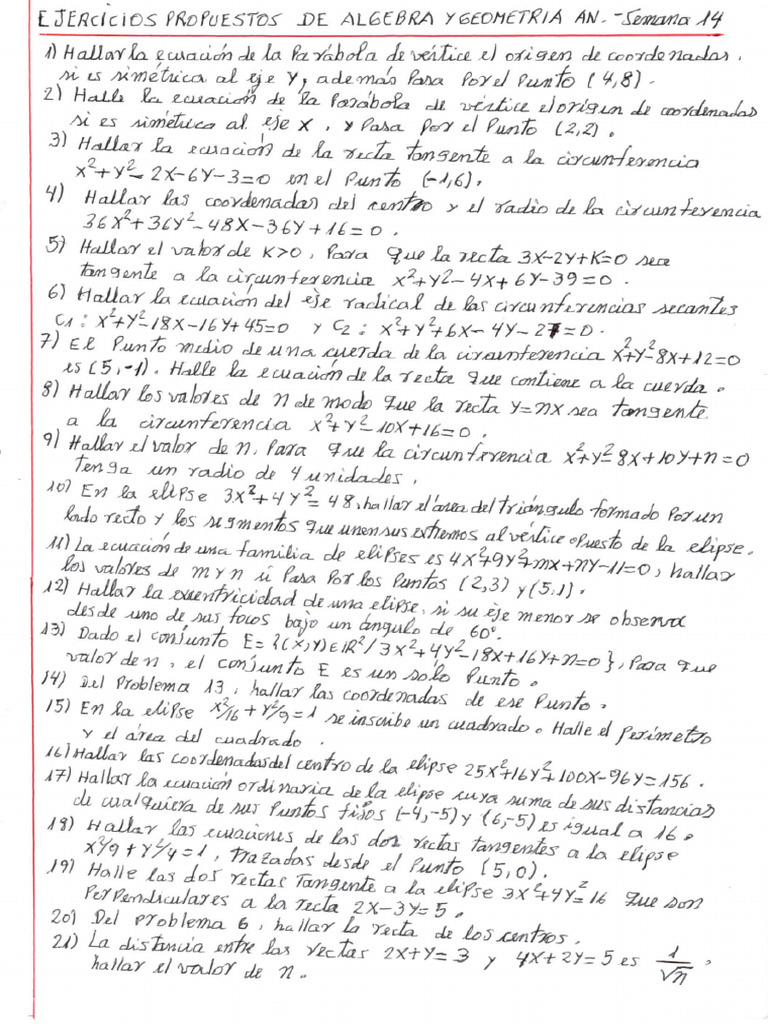 EJERCICIOS PROPUESTOS DE ALGEBRA Y GEOMETRIA AN. - Semana 14
1) Hallar la ecuación de la Parábola de vértice el origen de coordenadas,
si es simétrica al eje Y, además Pasa Por el Punto (4,8).
2) Halle la ecuación de la Parábola de vértice el origen de coordenadas
si es simétrica al eje X, y Pasa por el Punto (2,2).
3) Hallar la ecuación de la recta tangente a la circunferencia
x²+y²-2x-6y-3=0 en el Punto (-1,6).
4) Hallar las coordenadas del centro y el radio de la circunferencia
36x²+36y²-48x-36y+16=0.
5) Hallar el valor de K>0, Para que la recta 3x-2y+K=0 sea
tangente a la circunferencia x²+y²-4x+6y-39=0.
6) Hallar la ecuación del eje radical de las circunferencias secantes
C1: x²+y²-18x-16y+45=0 y C2: x²+y²+6x-4y-27=0.
7) El Punto medio de una cuerda de la circunferencia x²+y²-8x+12=0
es (5,-1). Halle la ecuación de la recta que contiene a la cuerda.
8) Hallar los valores de n de modo que la recta y=nx sea tangente
a la circunferencia x²+y²-10x+16=0.
9) Hallar el valor de n, Para que la circunferencia x²+y²-8x+10y+n=0
tenga un radio de 4 unidades.
10) En la elipse 3x²+4y²=48, hallar el área del triángulo formado Por un
lado recto y los segmentos que unen sus extremos al vértice opuesto de la elipse.
11) La ecuación de una familia de elipses es 4x²+9y²+mx+ny-11=0, hallar
los valores de m y n si Pasa Por los Puntos (2,3) y (5,1).
12) Hallar la excentricidad de una elipse, si su eje menor se observa
desde uno de sus focos bajo un ángulo de 60°.
13) Dado el conjunto E={(x,y)∈R²/3x²+4y²-18x+16y+n=0}, Para que
valor de n, el conjunto E es un sólo Punto.
14) Del Problema 13, hallar las coordenadas de ese Punto.
15) En la elipse x²/16+y²/9=1 se inscribe un cuadrado. Halle el Perímetro
y el área del cuadrado.
16) Hallar las coordenadas del centro de la elipse 25x²+16y²+100x-96y=156.
17) Hallar la ecuación ordinaria de la elipse cuya suma de sus distancias
de cualquiera de sus Puntos fijos (-4,-5) y (6,-5) es igual a 16.
18) Hallar las ecuaciones de las dos rectas tangentes a la elipse
x²/9+y²/4=1, trazadas desde el Punto (5,0).
19) Halle las dos rectas Tangente a la elipse 3x²+4y²=16 que son
Perpendiculares a la recta 2x-3y=5.
20) Del problema 6, hallar la recta de los centros.
21) La distancia entre las rectas 2x+y=3 y 4x+2y=5 es 1/√n,
hallar el valor de n.